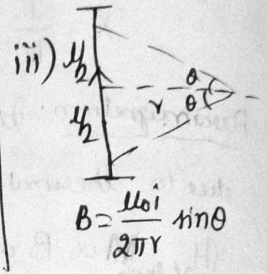 iii) l/2
θ
r θ
l/2
B = μ₀i / 2πr sinθ